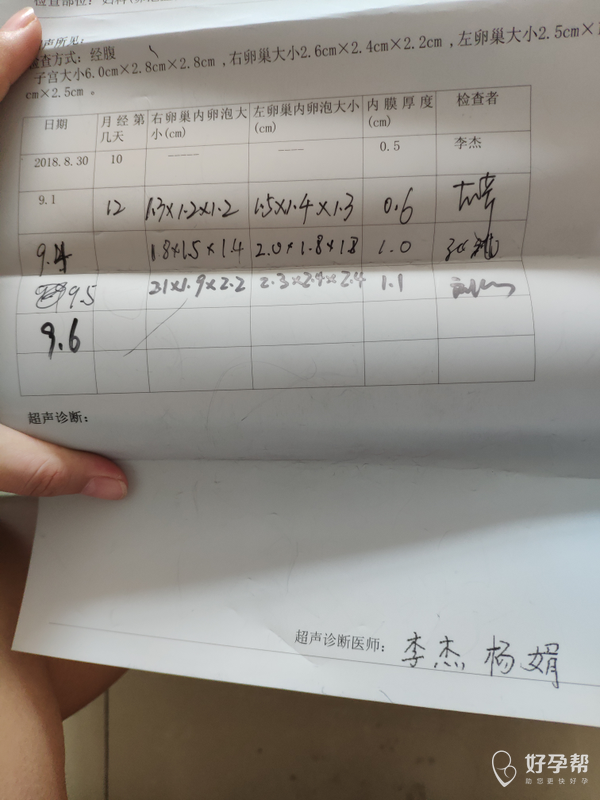 检查部位：
超声所见：
检查方式：经腹
子宫大小6.0cm×2.8cm×2.8cm，右卵巢大小2.6cm×2.4cm×2.2cm，左卵巢大小2.5cm×
cm×2.5cm。
日期 月经第几天 右卵巢内卵泡大小(cm) 左卵巢内卵泡大小(cm) 内膜厚度(cm) 检查者
2018.8.30 10 —— —— 0.5 李杰
9.1 12 1.3×1.2×1.2 1.5×1.4×1.3 0.6
9.4 1.8×1.5×1.4 2.0×1.8×1.8 1.0
9.5 2.1×1.9×2.2 2.3×2.4×2.4 1.1
9.6
超声诊断：
超声诊断医师：李杰 杨娟
好孕帮
助您更快好孕